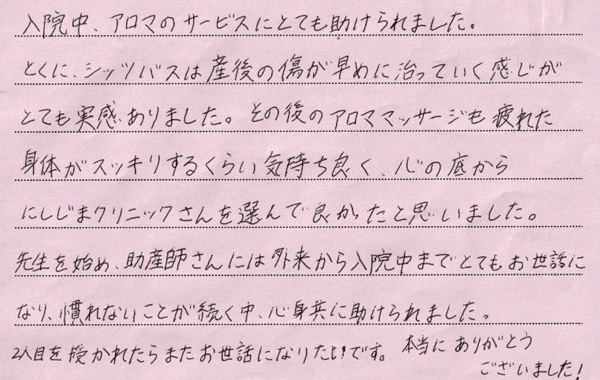 入院中、アロマのサービスにとても助けられました。
とくに、シッツバスは産後の傷が早めに治っていく感じが
とても実感ありました。その後のアロママッサージも疲れた
身体がスッキリするくらい気持ち良く、心の底から
にしじまクリニックさんを選んで良かったと思いました。
先生を始め、助産師さんには外来から入院中までとてもお世話に
なり、慣れないことが続く中、心身共に助けられました。
2人目を授かれたらまたお世話になりたいです。本当にありがとう
ございました!